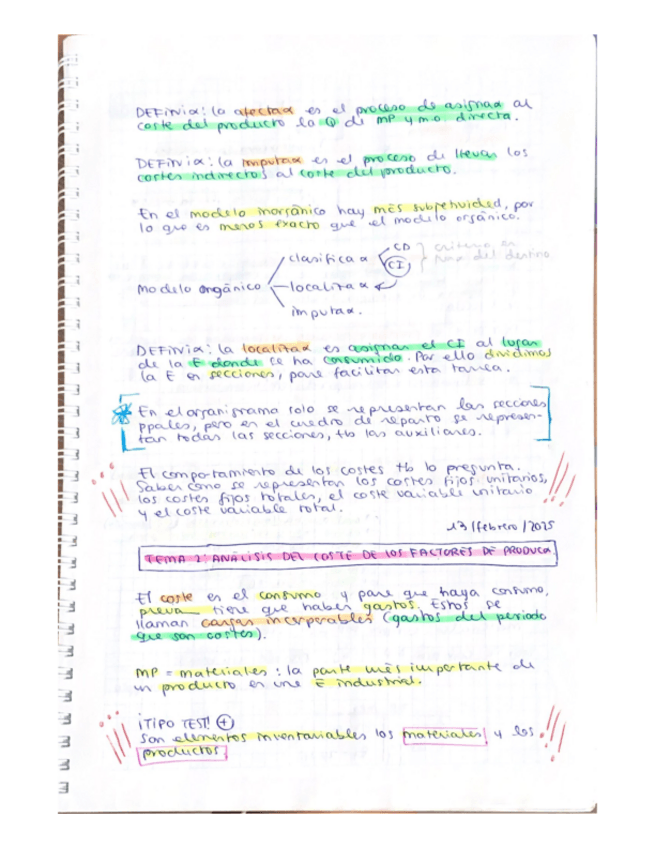 DEFiNiα: la afectaα es el proceso de asignaα al
coste del producto la Q de MP y m.o. directa.
DEFiNiα: la imputaα es el proceso de llevar los
costes indirectos al coste del producto.
En el modelo inorgánico hay más subjetividad, por
lo que es menos exacto que el modelo orgánico.
clasificaα
CD
CI
criterio en
del destino
Modelo orgánico
localizaα
imputaα.
DEFiNiα: la localizaα es asignar el CI al lugar
de la E donde se ha consumido. Por ello dividimos
la E en secciones, para facilitar esta tarea.
En el organigrama solo se representan las secciones
ppales, pero en el cuadro de reparto se represen-
tan todas las secciones, tb las auxiliares.
El comportamiento de los costes tb lo pregunta.
Saber cómo se representan los costes fijos unitarios,
los costes fijos totales, el coste variable unitario
y el coste variable total.
13/febrero/2025
TEMA 2: ANÁLISIS DEL COSTE DE LOS FACTORES DE PRODUCα
El coste es el consumo y para que haya consumo,
tiene que haber gastos. Estos se
llaman cargas incorporables (gastos del periodo
que son costes).
MP = materiales: la parte más importante de
un producto en una E industrial.
¡TIPO TEST! +
Son elementos inventariables los materiales y los
productos